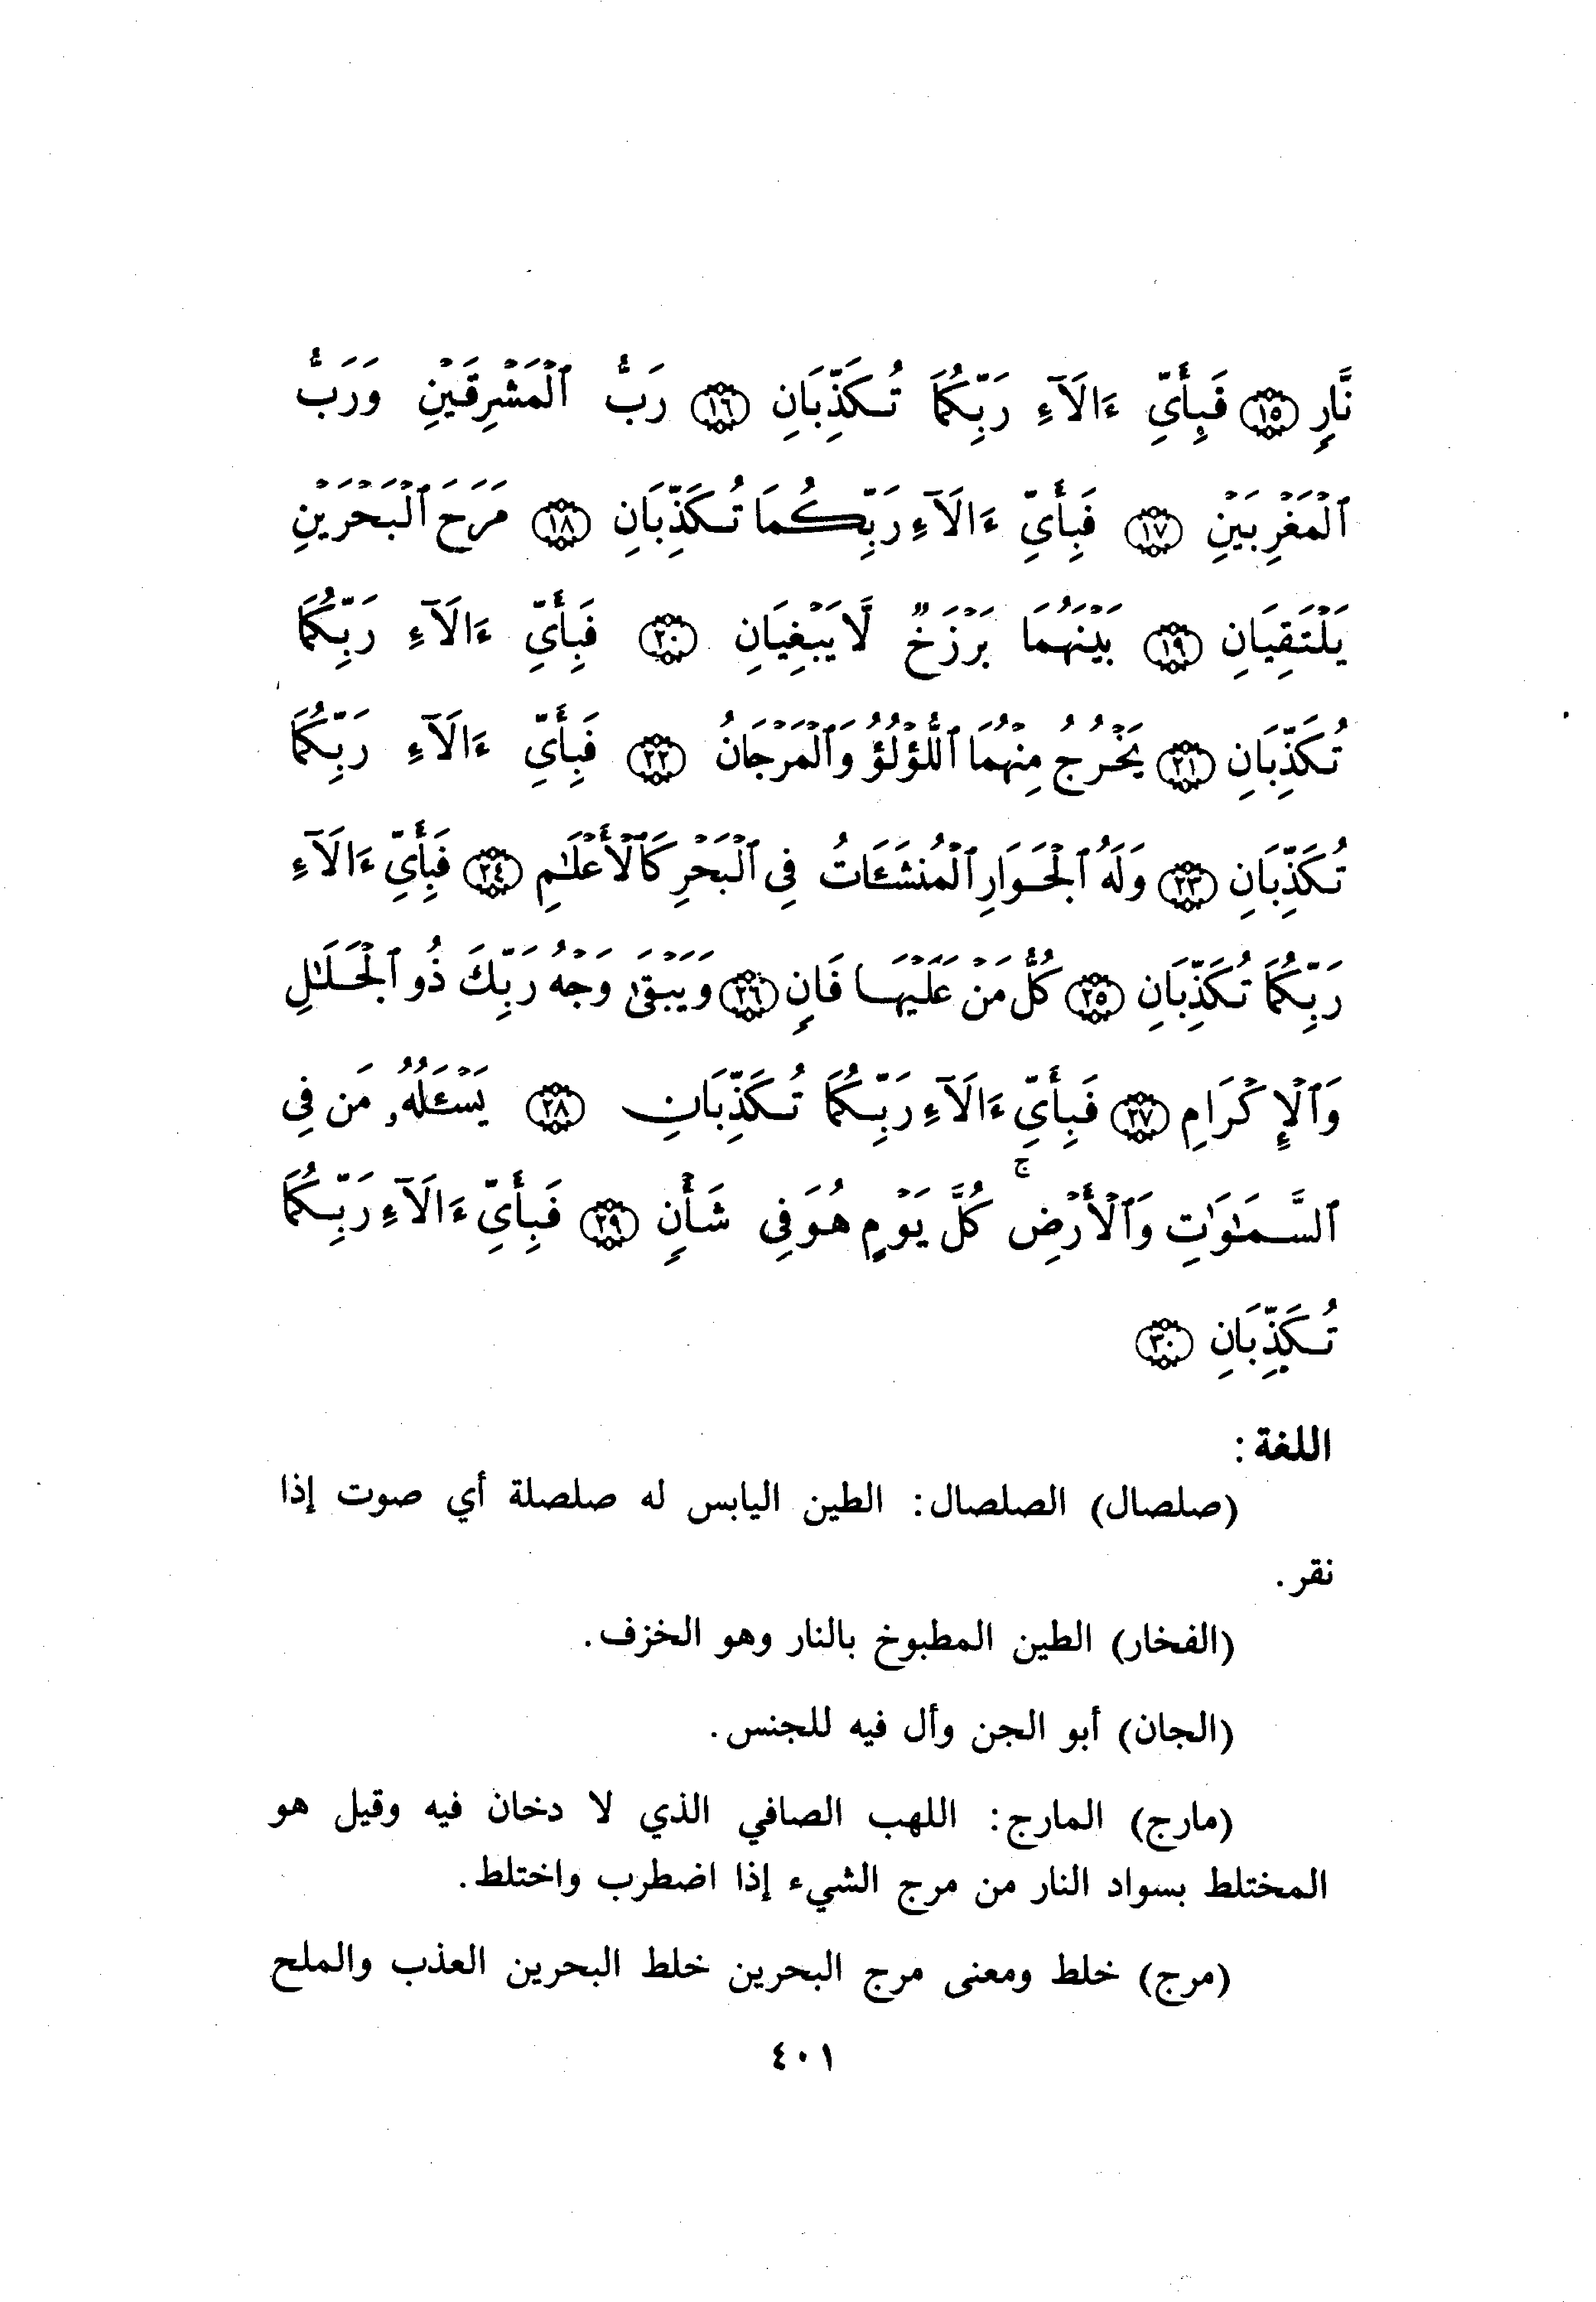 نَّارٍ ﴿١٥﴾ فَبِأَيِّ ءَالَآءِ رَبِّكُمَا تُكَذِّبَانِ ﴿١٦﴾ رَبُّ ٱلْمَشْرِقَيْنِ وَرَبُّ
ٱلْمَغْرِبَيْنِ ﴿١٧﴾ فَبِأَيِّ ءَالَآءِ رَبِّكُمَا تُكَذِّبَانِ ﴿١٨﴾ مَرَجَ ٱلْبَحْرَيْنِ
يَلْتَقِيَانِ ﴿١٩﴾ بَيْنَهُمَا بَرْزَخٌ لَّا يَبْغِيَانِ ﴿٢٠﴾ فَبِأَيِّ ءَالَآءِ رَبِّكُمَا
تُكَذِّبَانِ ﴿٢١﴾ يَخْرُجُ مِنْهُمَا ٱللُّؤْلُؤُ وَٱلْمَرْجَانُ ﴿٢٢﴾ فَبِأَيِّ ءَالَآءِ رَبِّكُمَا
تُكَذِّبَانِ ﴿٢٣﴾ وَلَهُ ٱلْجَوَارِ ٱلْمُنشَـَٔاتُ فِى ٱلْبَحْرِ كَٱلْأَعْلَٰمِ ﴿٢٤﴾ فَبِأَيِّ ءَالَآءِ
رَبِّكُمَا تُكَذِّبَانِ ﴿٢٥﴾ كُلُّ مَنْ عَلَيْهَا فَانٍ ﴿٢٦﴾ وَيَبْقَىٰ وَجْهُ رَبِّكَ ذُو ٱلْجَلَٰلِ
وَٱلْإِكْرَامِ ﴿٢٧﴾ فَبِأَيِّ ءَالَآءِ رَبِّكُمَا تُكَذِّبَانِ ﴿٢٨﴾ يَسْـَٔلُهُۥ مَن فِى
ٱلسَّمَٰوَٰتِ وَٱلْأَرْضِ ۚ كُلَّ يَوْمٍ هُوَ فِى شَأْنٍ ﴿٢٩﴾ فَبِأَيِّ ءَالَآءِ رَبِّكُمَا
تُكَذِّبَانِ ﴿٣٠﴾
اللغة :
(صلصال) الصلصال: الطين اليابس له صلصلة أي صوت إذا
نقر.
(الفخار) الطين المطبوخ بالنار وهو الخزف.
(الجان) أبو الجن وأل فيه للجنس.
(مارج) المارج: اللهب الصافي الذي لا دخان فيه وقيل هو
المختلط بسواد النار من مرج الشيء إذا اضطرب واختلط.
(مرج) خلط ومعنى مرج البحرين خلط البحرين العذب والملح
٤٠١